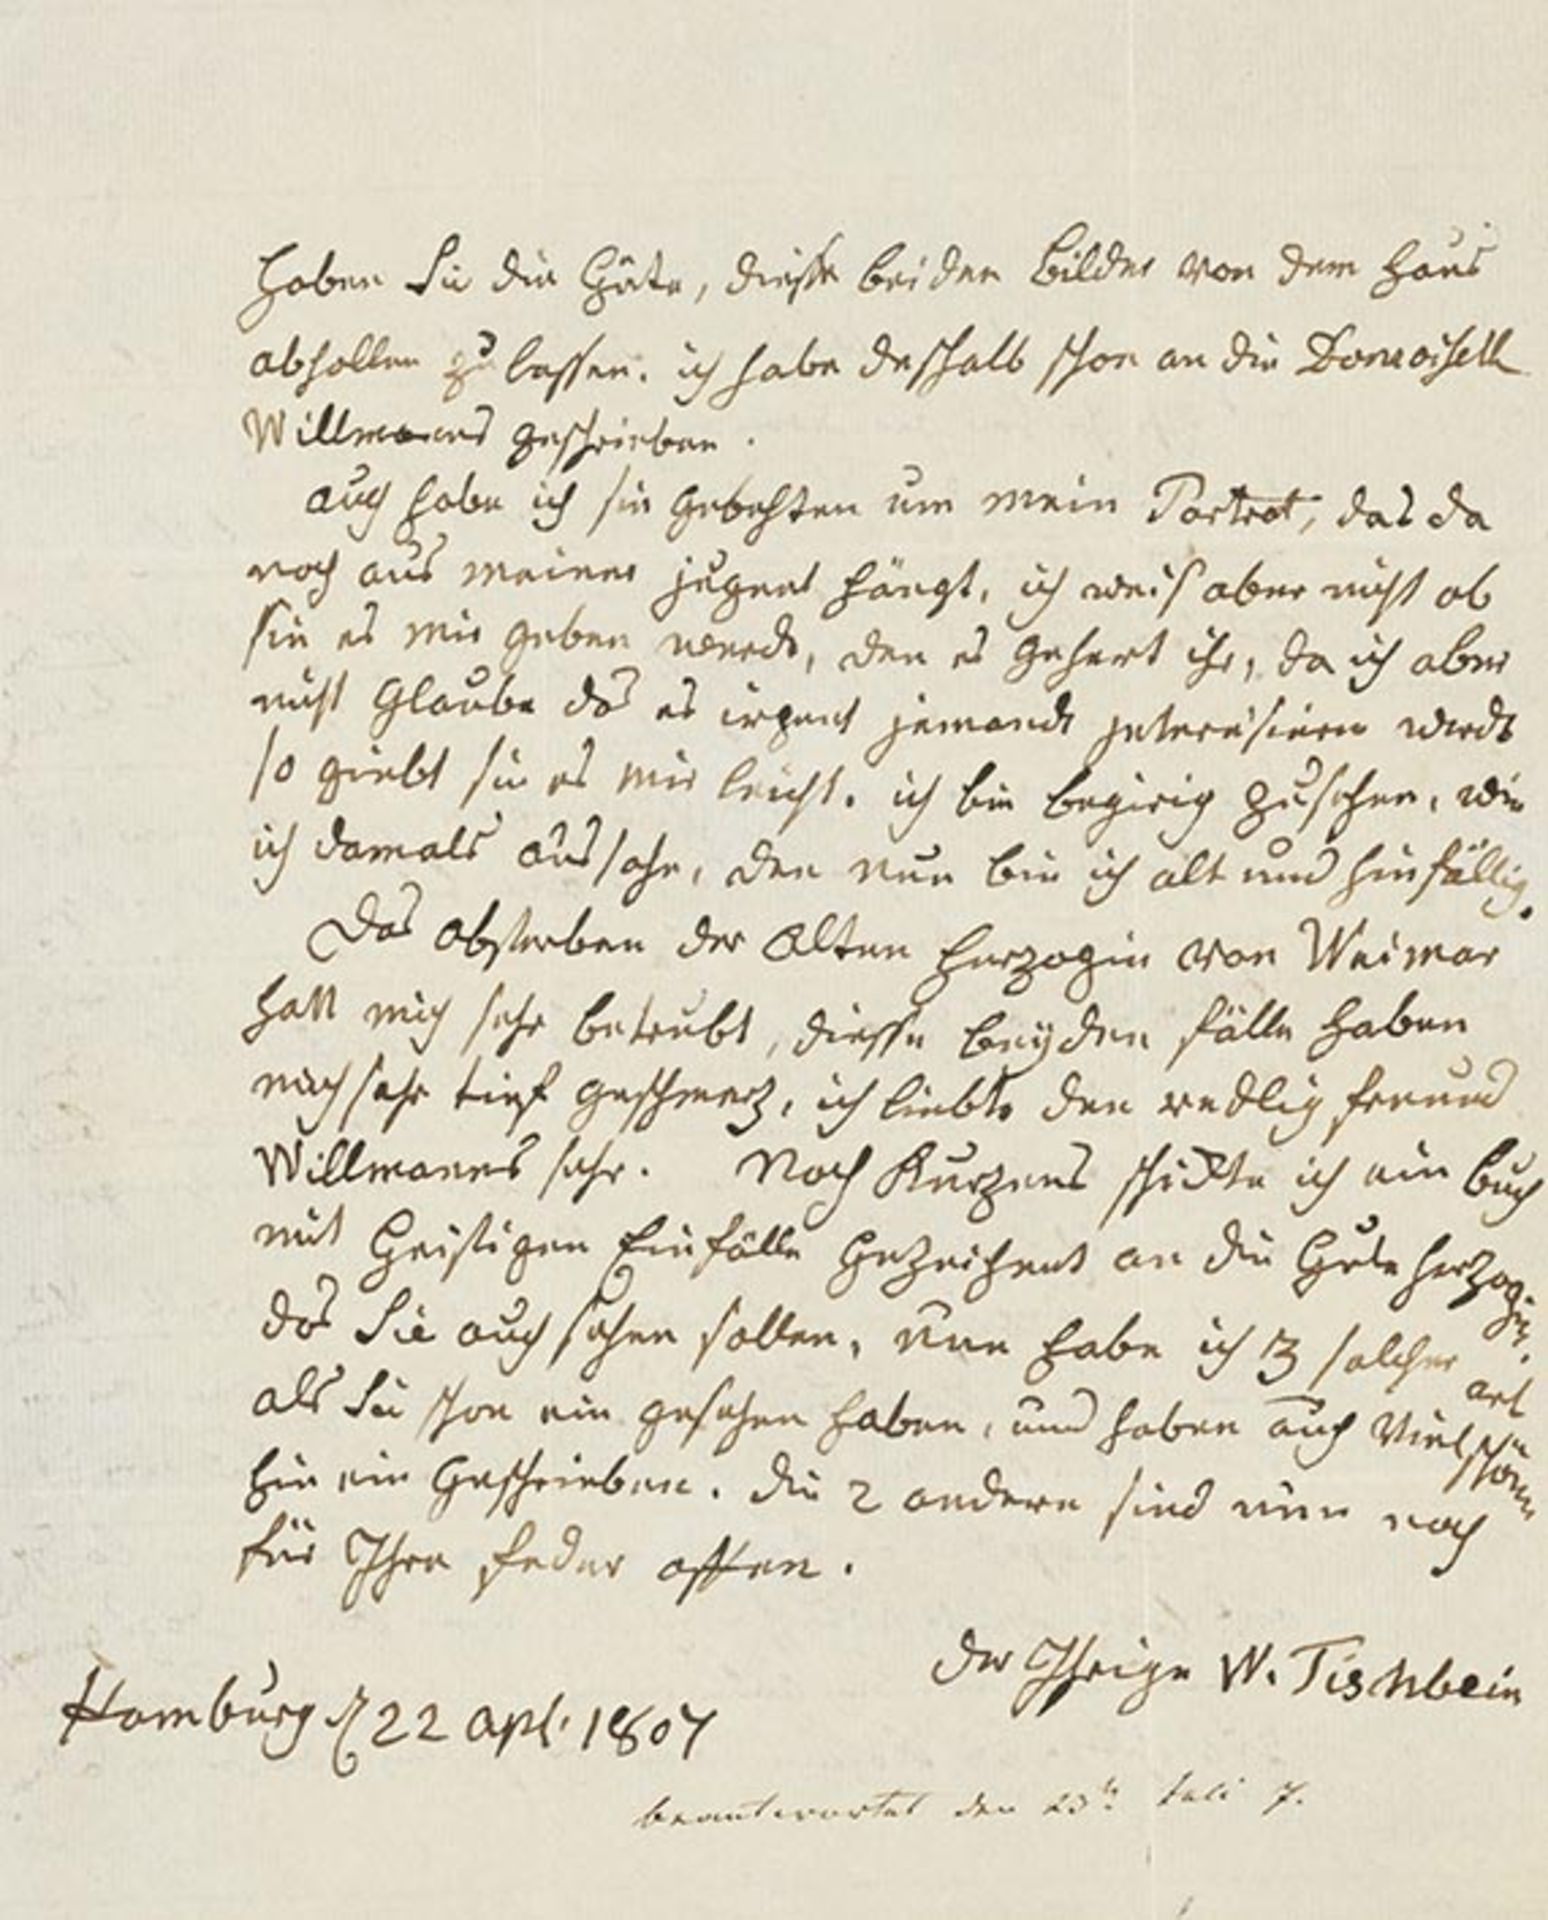 Haben Sie die Güte, diesse beiden Bilder von dem Haus
abhollen zu lassen. ich habe deshalb schon an die Demoisell
Willmanns geschrieben.
auch habe ich sie gebehten um mein Portrat, das da
noch aus meiner jugent hängt, ich weis aber nicht ob
sie es mir geben werde, den es gehert ihr, da ich aber
nicht Glaube das es irgent jemandt jnteresieren wirdt
so giebt sie es mir leicht. ich bin begirig zu sehen, wie
ich damals aussahe, den nun bin ich alt und hinfällig.
Das absterben der Alten Herzogin von Weimar
hatt mich sehr betrubt, diesse beyden fälle haben
mich sehr tief geschmerz, ich liebte den redlig freund
Willmanns sehr. Noch Kurzens schickte ich ein buch
mit Geistigen Einfälle Gezeichent an die Gute Herzogin.
das Sie auch sehen sollen, nun habe ich 3 solcher art
als Sie schon ein gesehen haben, und haben auch Viel schön
hin ein Geschrieben. die 2 andern sind nun noch
für Ihre feder offen.
der Ihrige W. Tischbein
Hamburg d 22 Apl. 1807
beantwortet den Juli 7.